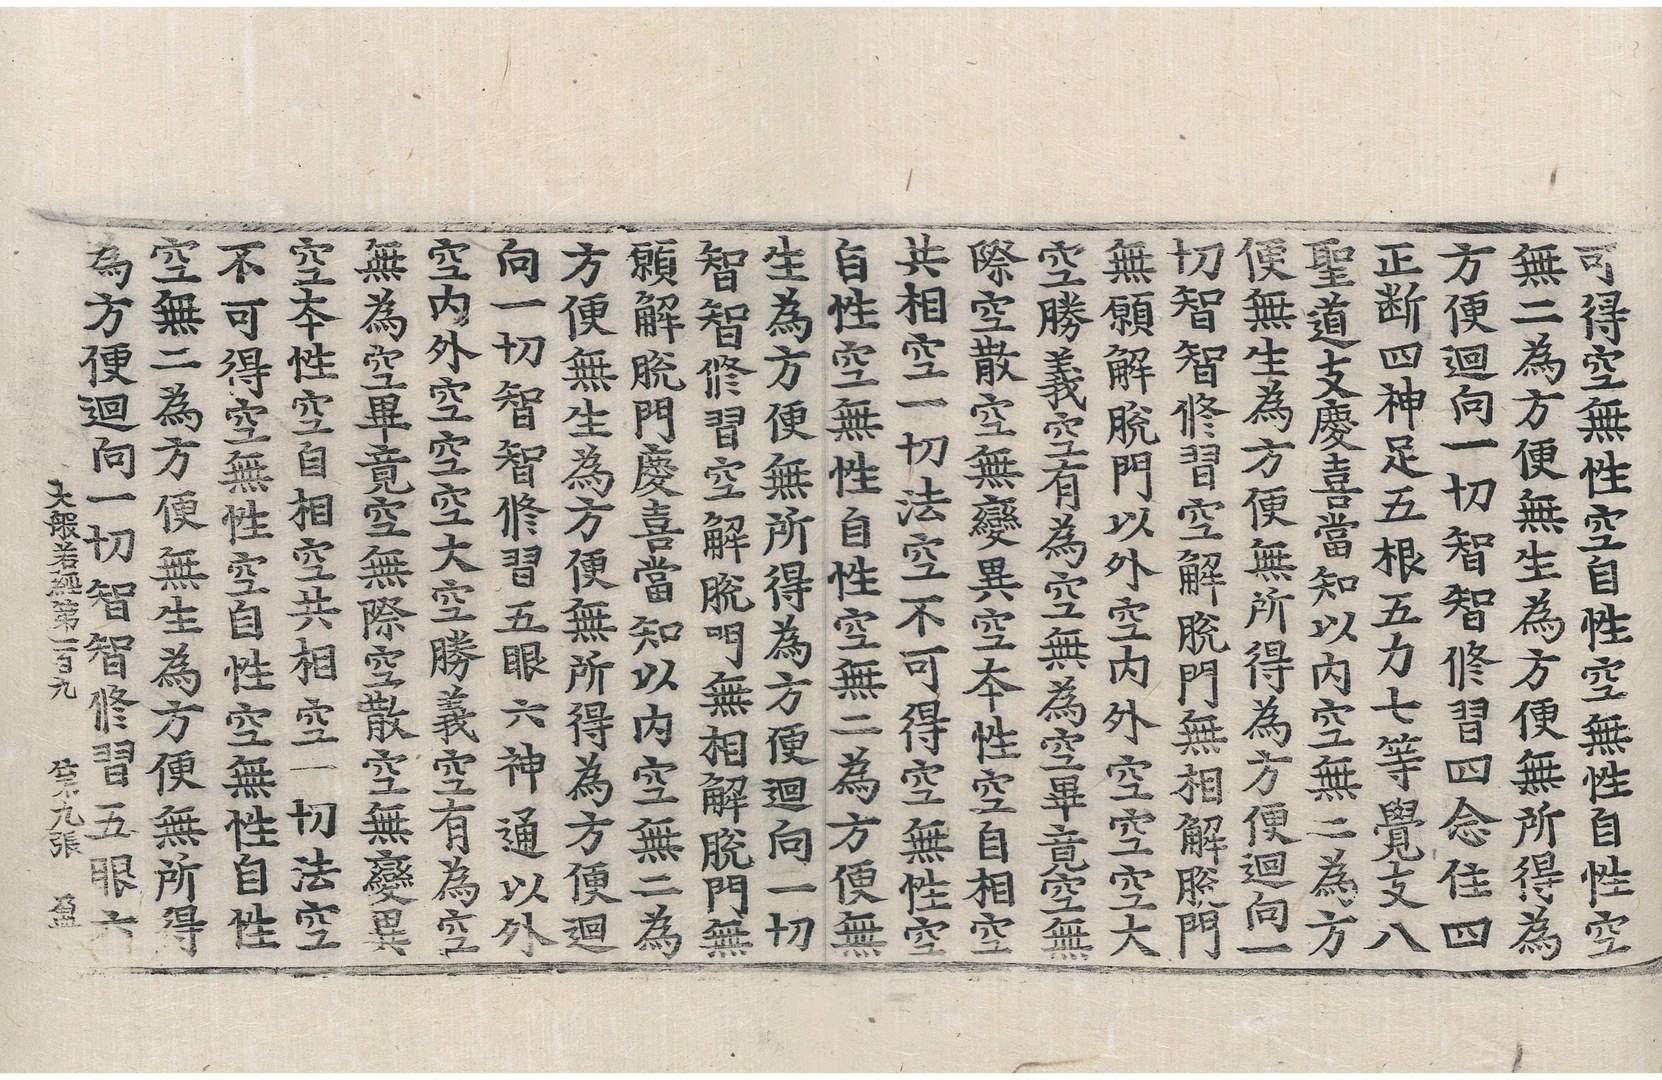 可得空無性空自性空無性自性空
無二為方便無生為方便無所得為
方便迴向一切智智修習四念住四
正断四神足五根五力七等覺支八
聖道支慶喜當知以內空無二為方
便無生為方便無所得為方便迴向一
切智智修習空解脫門無相解脫門
無願解脫門以外空內外空空空大
空勝義空有為空無為空畢竟空無
際空散空無變異空本性空自相空
共相空一切法空不可得空無性空
自性空無性自性空無二為方便無
生為方便無所得為方便迴向一切
智智修習空解脫門無相解脫門無
願解脫門慶喜當知以內空無二為
方便無生為方便無所得為方便迴
向一切智智修習五眼六神通以外
空內外空空空大空勝義空有為空
無為空畢竟空無際空散空無變異
空本性空自相空共相空一切法空
不可得空無性空自性空無性自性
空無二為方便無生為方便無所得
為方便迴向一切智智修習五眼六
大般若經第一百九 第九張 盈